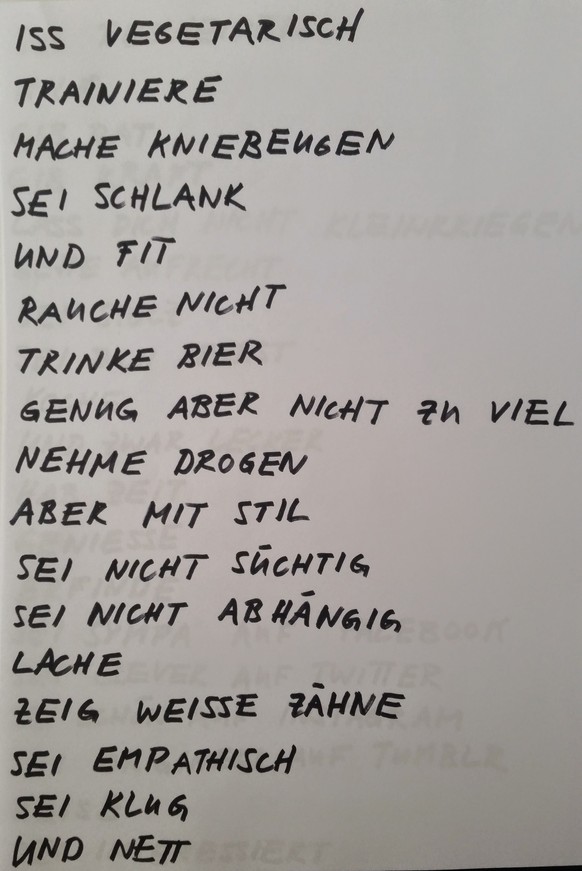 ISS VEGETARISCH
TRAINIERE
MACHE KNIEBEUGEN
SEI SCHLANK
UND FIT
RAUCHE NICHT
TRINKE BIER
GENUG ABER NICHT ZU VIEL
NEHME DROGEN
ABER MIT STIL
SEI NICHT SÜCHTIG
SEI NICHT ABHÄNGIG
LACHE
ZEIG WEISSE ZÄHNE
SEI EMPATHISCH
SEI KLUG
UND NETT